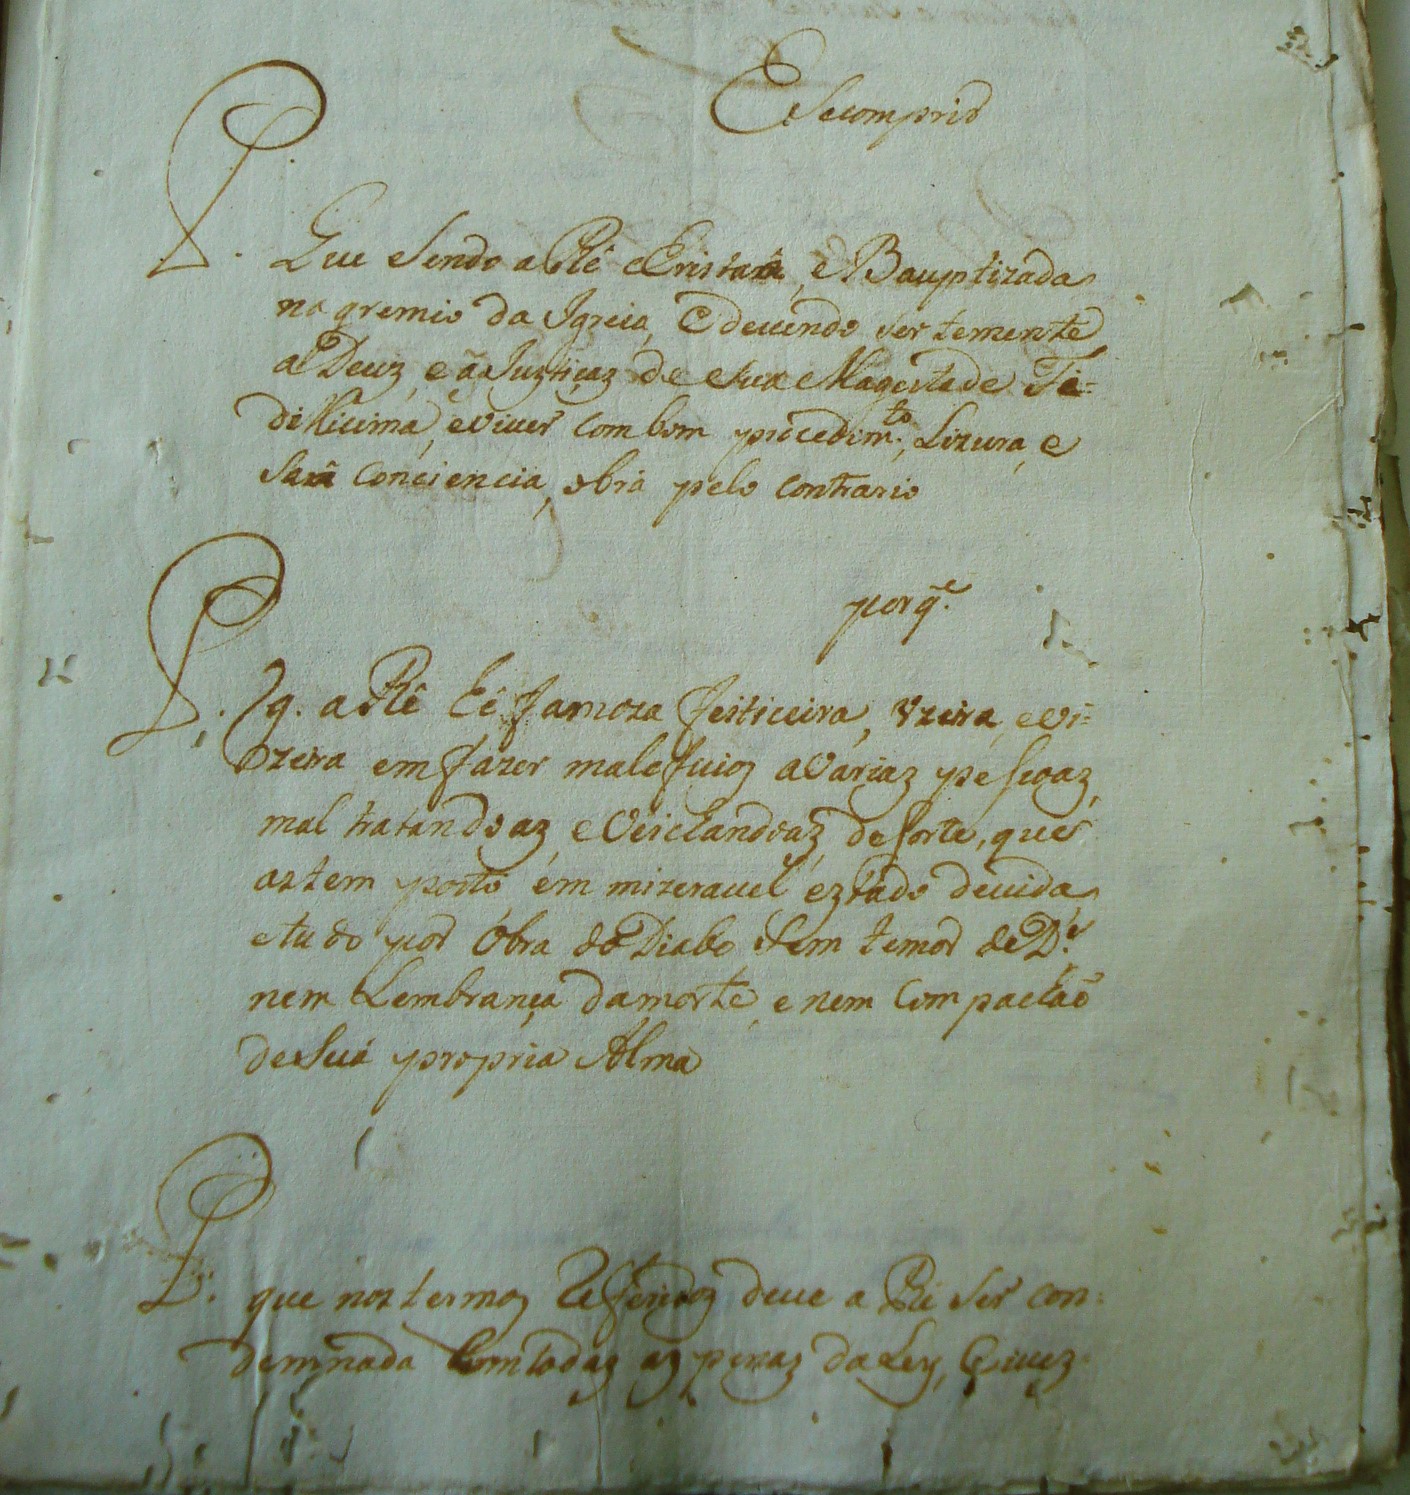 E Se comprirá
P. Que Sendo a Rê Cristaã, e Bauptizada
no gremio da Igreia, E devendo ser temente
a Deuz, e ás Justiçaz de Sua Magestade Fi=
dillicima, e viver com bom procedim.to, Lizura, e
Saã conciencia, obra pelo contrario
porq.e
P. q. a Rê hê famoza feiticeira, Uzeira, e vi=
zeira em fazer maleficioz a Variaz pessoaz,
mal tratandoaz, e Veichandoaz, de sorte, que
az tem posto em mizeravel eztado de vida
e tudo por Obra do Diabo Sem temor de D.s
nem Lembrança da morte, e nem Compachaõ
de Sua propria Alma
P. que noz termoz Referidoz deve a Ré Ser con=
demnada Com todaz az penaz da Ley, Civez